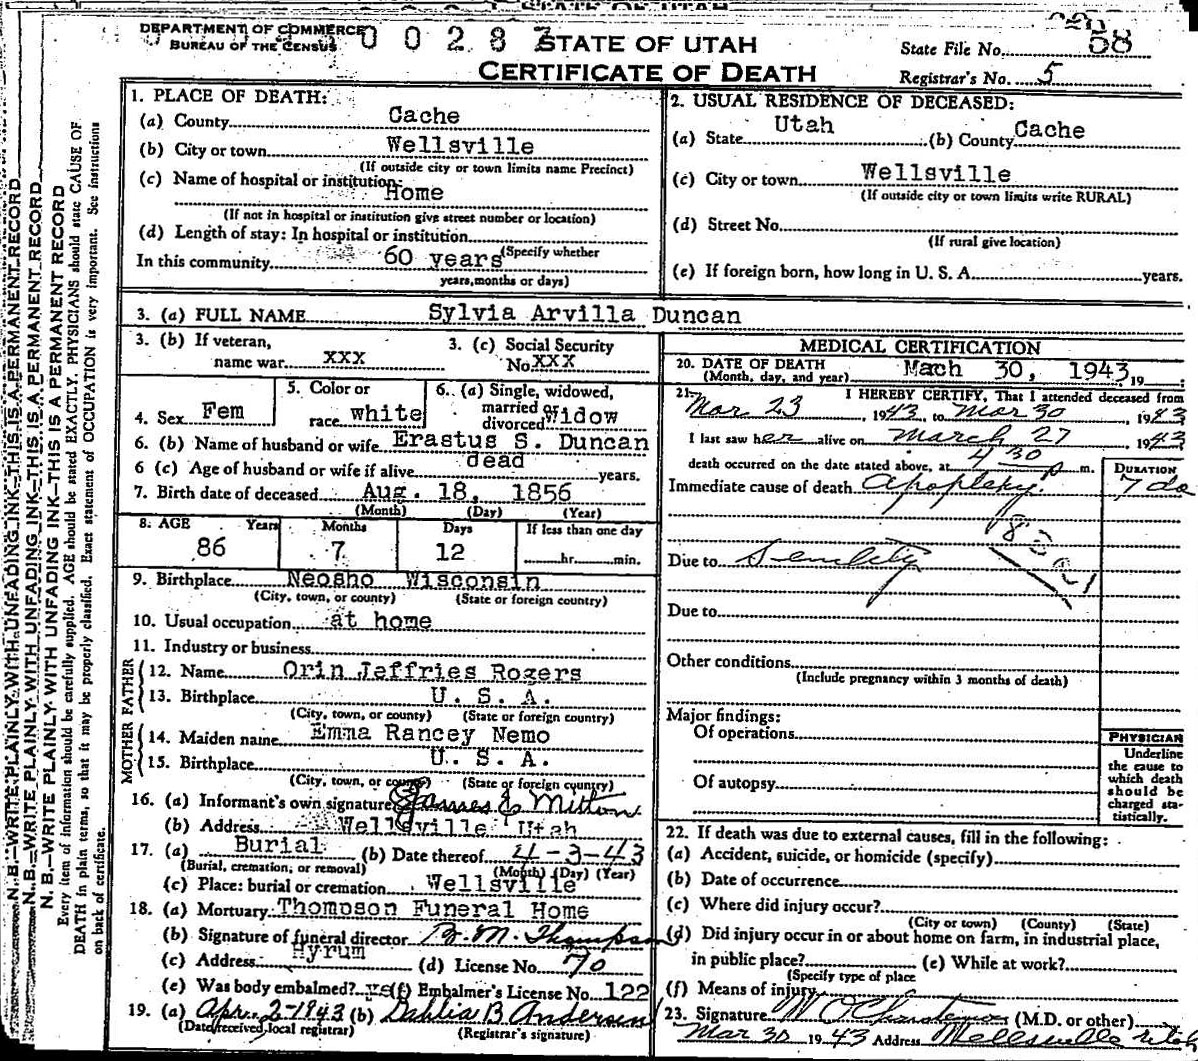 DEPARTMENT OF COMMERCE
BUREAU OF THE CENSUS
STATE OF UTAH
CERTIFICATE OF DEATH
State File No. 58
Registrar's No. 5
N. B.—WRITE PLAINLY WITH UNFADING INK—THIS IS A PERMANENT RECORD
N. B.—WRITE PLAINLY WITH UNFADING INK—THIS IS A PERMANENT RECORD
N. B.—WRITE PLAINLY WITH UNFADING INK—THIS IS A PERMANENT RECORD
Every item of information should be carefully supplied. AGE should be stated EXACTLY. PHYSICIANS should state CAUSE OF
DEATH in plain terms, so that it may be properly classified. Exact statement of OCCUPATION is very important. See instructions
on back of certificate.
1. PLACE OF DEATH:
(a) County Cache
(b) City or town Wellsville
(If outside city or town limits name Precinct)
(c) Name of hospital or institution: Home
(If not in hospital or institution give street number or location)
(d) Length of stay: In hospital or institution
(Specify whether
In this community 60 years
years, months or days)
2. USUAL RESIDENCE OF DECEASED:
(a) State Utah (b) County Cache
(c) City or town Wellsville
(If outside city or town limits write RURAL)
(d) Street No.
(If rural give location)
(e) If foreign born, how long in U. S. A. years.
3. (a) FULL NAME Sylvia Arvilla Duncan
3. (b) If veteran,
name war xxx
3. (c) Social Security
No. XXX
4. Sex Fem
5. Color or
race white
6. (a) Single, widowed,
married or
divorced Widow
6. (b) Name of husband or wife Erastus S. Duncan
6 (c) Age of husband or wife if alive dead years.
7. Birth date of deceased Aug. 18, 1856
(Month) (Day) (Year)
8. AGE Years Months Days If less than one day
86 7 12 hr. min.
9. Birthplace Neosho Wisconsin
(City, town, or county) (State or foreign country)
10. Usual occupation at home
11. Industry or business
FATHER
12. Name Orin Jeffries Rogers
13. Birthplace U. S. A.
(City, town, or county) (State or foreign country)
MOTHER
14. Maiden name Emma Rancey Nemo
15. Birthplace U. S. A.
(City, town, or county) (State or foreign country)
16. (a) Informant's own signature James E Mitton
(b) Address Wellsville Utah
17. (a) Burial (b) Date thereof 4-3-43
(Burial, cremation, or removal) (Month) (Day) (Year)
(c) Place: burial or cremation Wellsville
18. (a) Mortuary Thompson Funeral Home
(b) Signature of funeral director M. Thompson
(c) Address Hyrum (d) License No. 70
(e) Was body embalmed? yes (f) Embalmer's License No. 122
19. (a) Apr. 2-1943 (b) Dahlia B. Andersen
(Date received, local registrar) (Registrar's signature)
MEDICAL CERTIFICATION
20. DATE OF DEATH
(Month, day, and year) Mach 30, 1943, 19
21. I HEREBY CERTIFY, That I attended deceased from
Mar. 23, 1943, to Mar 30, 1943
I last saw her alive on March 27 1943
death occurred on the date stated above, at 4 30 p m.
DURATION
Immediate cause of death Apoplexy. 7 da
Due to Senility
Due to
Other conditions
(Include pregnancy within 3 months of death)
Major findings:
Of operations
Of autopsy
PHYSICIAN
Underline
the cause to
which death
should be
charged sta-
tistically.
22. If death was due to external causes, fill in the following:
(a) Accident, suicide, or homicide (specify)
(b) Date of occurrence
(c) Where did injury occur?
(City or town) (County) (State)
(d) Did injury occur in or about home on farm, in industrial place,
in public place? (e) While at work?
(Specify type of place
(f) Means of injury
23. Signature (M.D. or other)
Mar 30 1943 Address Wellsville Utah